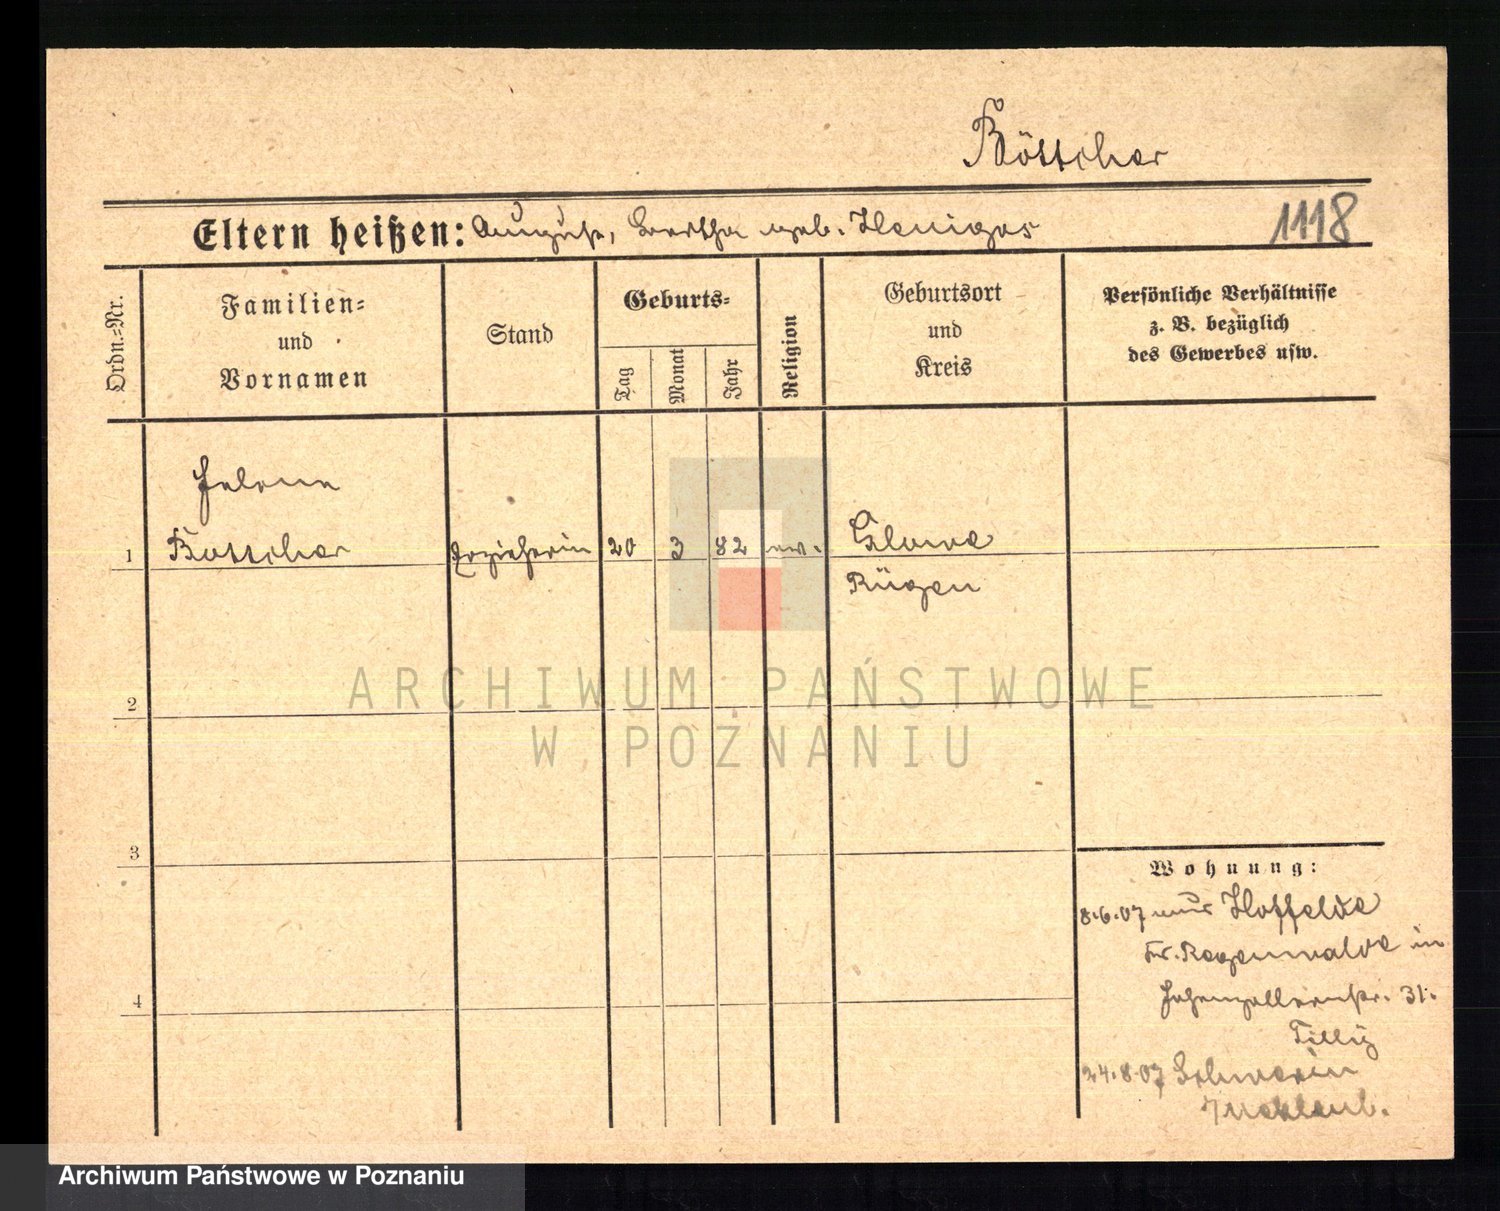 Böttcher
Eltern heißen: August, Bertha geb. Heniges
1118
Ordn.-Nr.
Familien-
und
Vornamen
Stand
Geburts-
Tag
Monat
Jahr
Religion
Geburtsort
und
Kreis
Persönliche Verhältnisse
z. B. bezüglich
des Gewerbes usw.
Helene
1 Bottcher Erzieherin 20 3 82 ev. Glowe
Rügen
ARCHIWUM PAŃSTWOWE
2
W POZNANIU
3
Wohnung:
8.6.07 aus Hoffelde
Kr. Regenwalde in
4
Hohenzollernstr. 31.
24.8.07 Schwerin
Mecklenb.
Archiwum Państwowe w Poznaniu